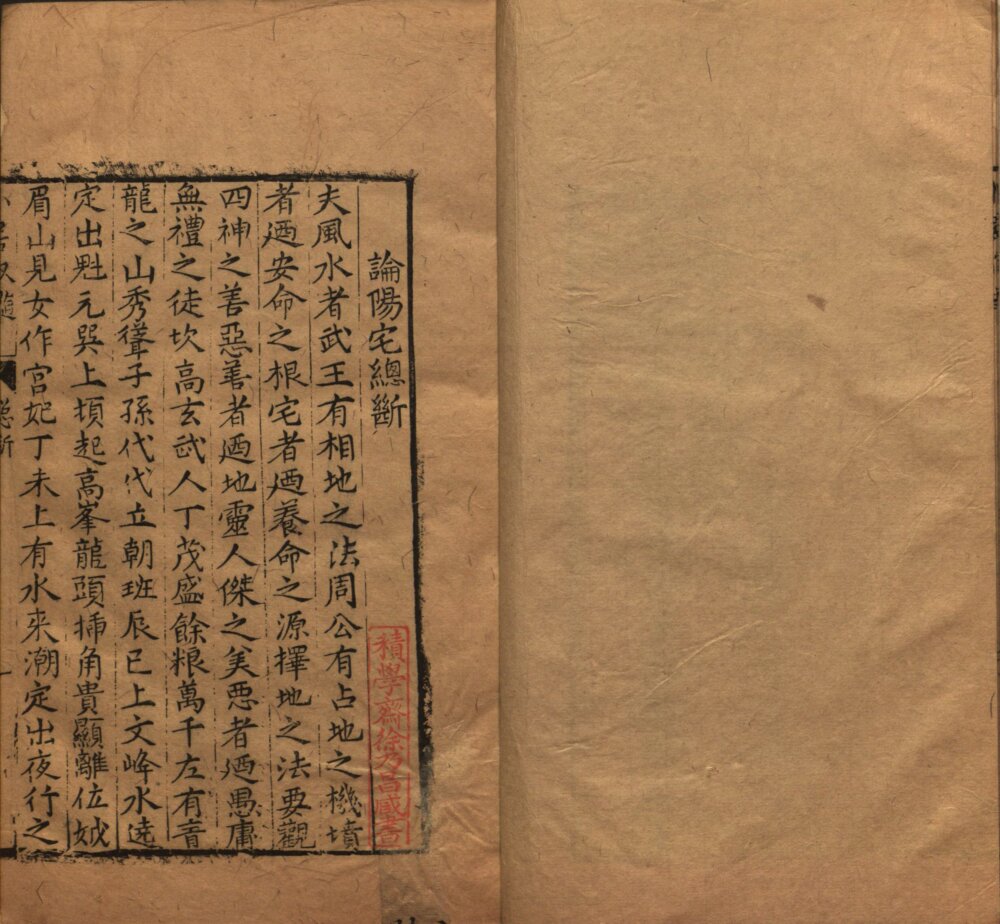 論陽宅總斷
積學齋徐乃昌藏書
夫風水者武王有相地之法周公有占地之機墳
者廼安命之根宅者廼養命之源擇地之法要觀
四神之善惡善者廼地靈人傑之美悪者廼愚庸
無禮之徒坎高玄武人丁茂盛餘粮萬千左有青
龍之山秀聳子孫代代立朝班辰巳上文峰水遶
定出魁元巽上頃起高峯龍頭揷角貴顯離位
眉山見女作宮妃丁未上有水來潮定出夜行之